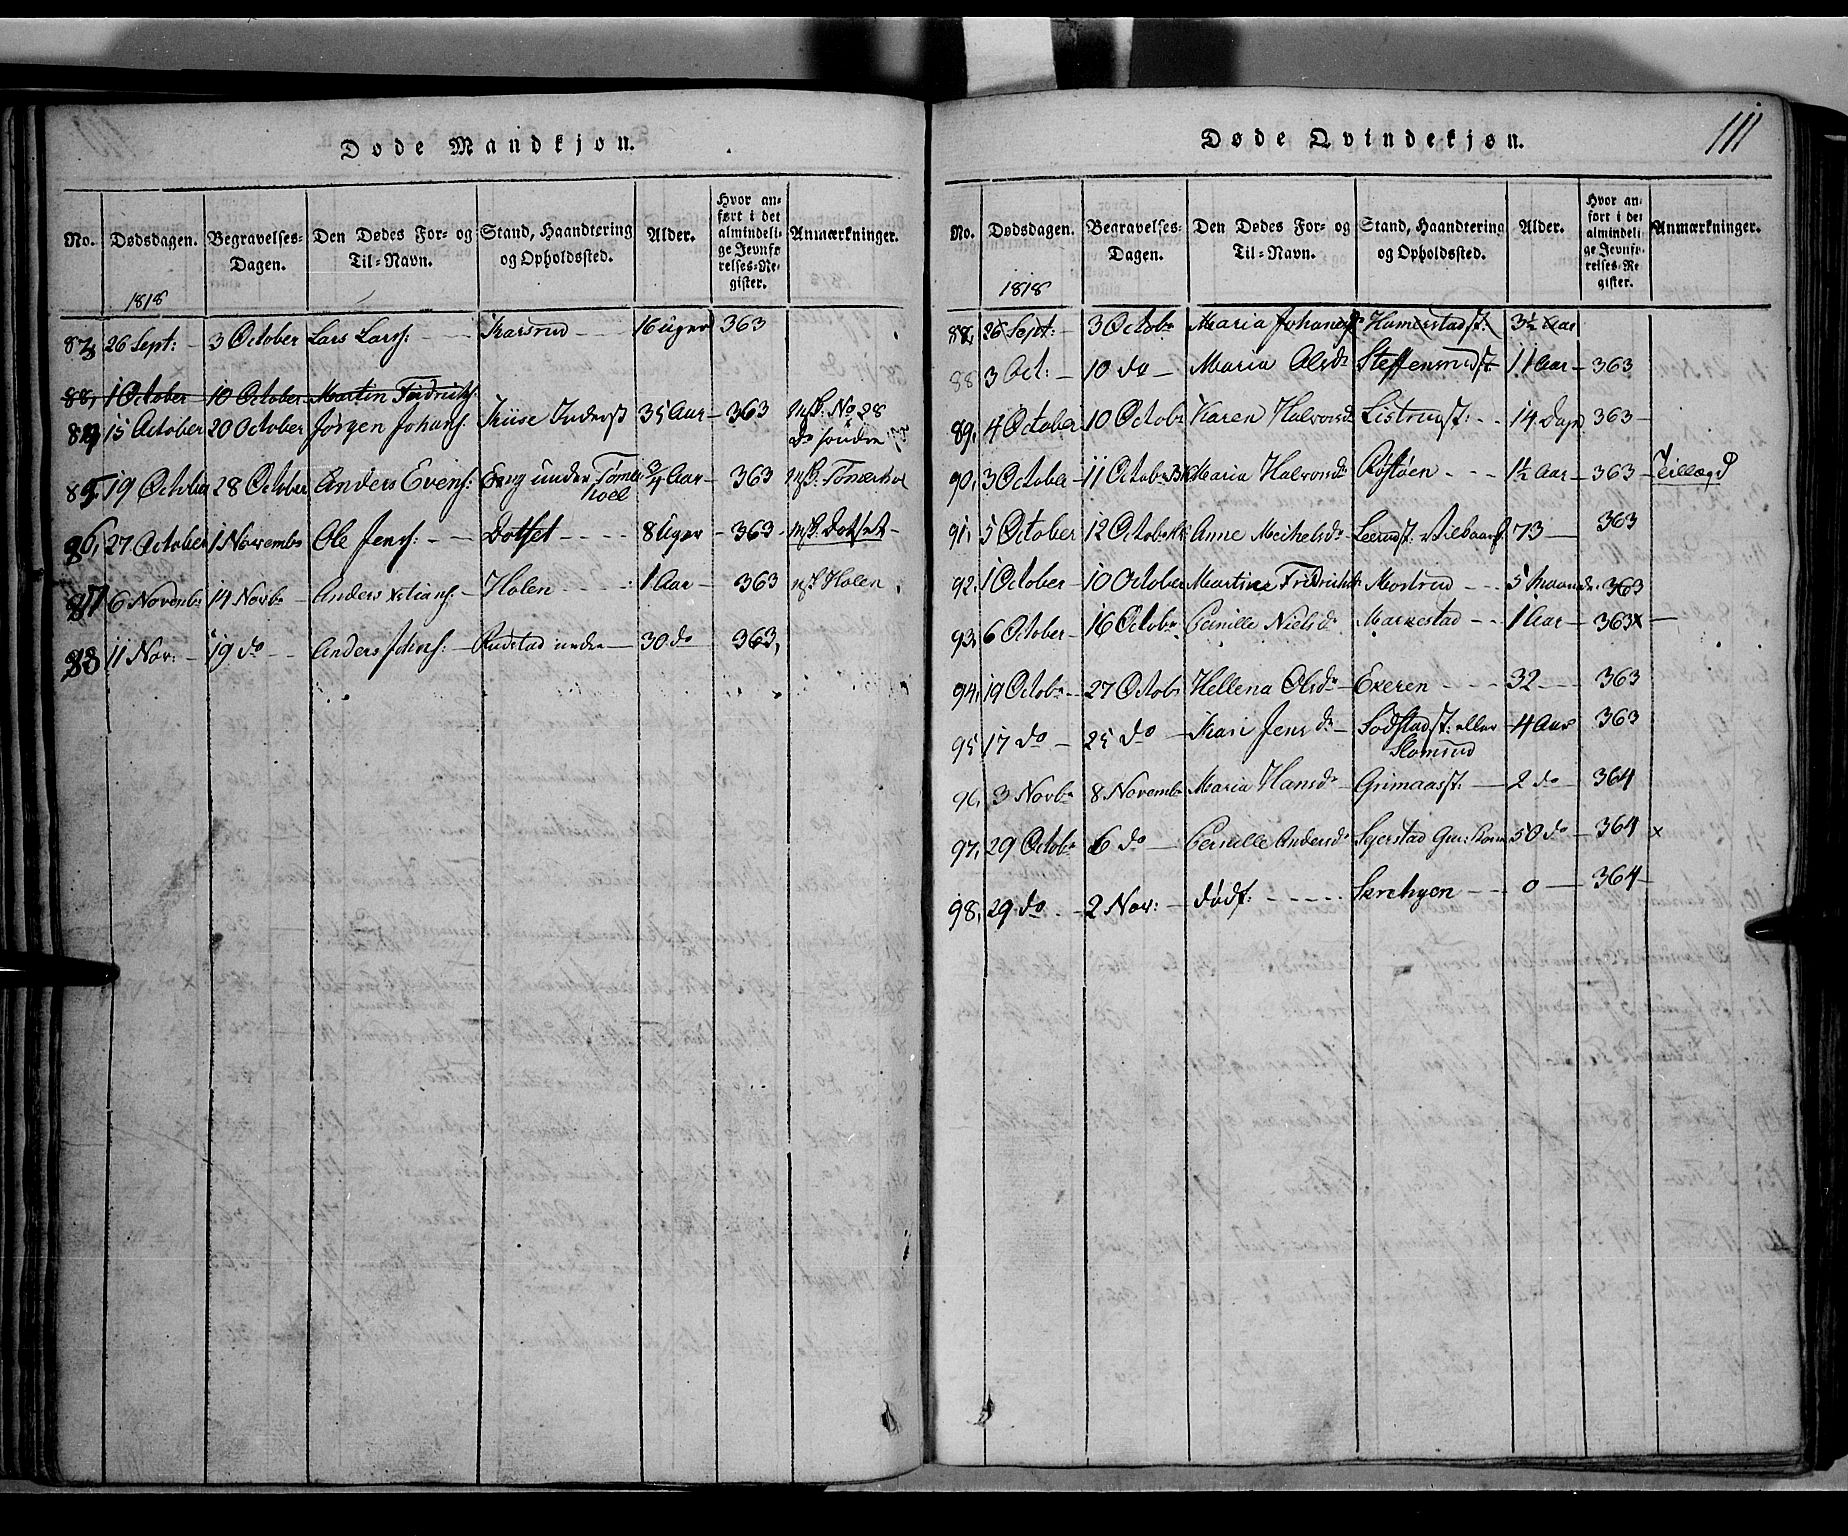 Døde Mandkjøn.
No. Dødsdagen. Begravelses-Dagen. Den Dødes For- og Til-Navn. Stand, Haandtering og Opholdssted. Alder. Hvor anført i det almindelige Jevnførelses-Register. Anmærkninger.
1818
26 Sept: – 3 October Lars Larss: Karsrud – 16 Uger 363
88, 1 October 10 October Martin Fridrichs:
15 October 20 October Jørgen Johans: 35 Aar – 363 No 28
19 October 28 October Anders Evens: Berg under Tømmerhoel 3/4 Aar – 363
27 October 1 Novembr Ole Jens: – – Dotset – – – – 8 Uger – 363 Dotset –
6 Novembr 14 Novbr Anders Xstians: – Holen – – – 1 Aar – 363 Holen
11 Nov: – 19 do – Anders Johns: – Rudstad under – 30 do 363,
Døde Qvindekjøn.
111
No. Dødsdagen. Begravelses-Dagen. Den Dødes For- og Til-Navn. Stand, Haandtering og Opholdssted. Alder. Hvor anført i det almindelige Jevnførelses-Register. Anmærkninger.
1818
26 Sept: – 3 Octobr Maria Hamerstadst: 3½ Aar
88 3 Oct: – 10 do – Maria Olsdr Steffensrudst – 11 Aar – 363
89, 4 October 10 Octobr Karen Halvorsdr Listrudst: – – 14 Dage 363 –
90, 3 October – 11 Octobr Maria Halvorsdr Røstøen – – – 1½ Aar – 363 – Tillægd
91, 5 October 12 Octobr Anne Meikelsdr Leerudst. 73 – 363
92, 1 October – 10 October Martine Fridrichsdr Mostrud – – 5 Maander 363
93, 6 October – 16 Octobr Pernille Nielsdr Markestad – – 1 Aar – 363 x –
94, 19 Octobr – 27 Octobr Hellena Olsdr – Exeren – – – 32 – 363
95, 17 do – 25 do – Kari Jensdr – Sodstadst: eller Slomsrud – 4 Aar 363
96, 3 Novbr 8 Novembr Maria Hansdr – Grimaasst: – 2 do – 364
97, 29 Octobr 6 do – Pernille Andersdr Sgerstad 50 do – 364 x
98, 29 do – – 2 Nov: – dødf: – – – – – – 0 – 364 –